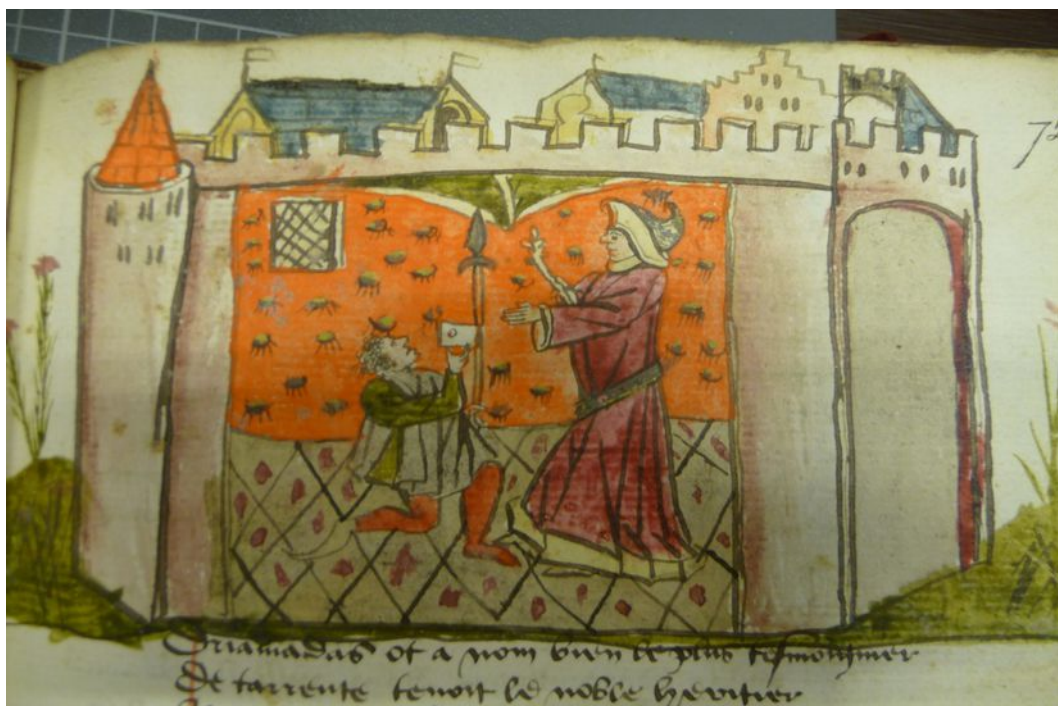 7
Driamadas ot a nom bien le puis tesmoignier
De tarrente tenoit le noble heritier